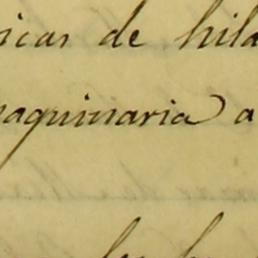 icas de hila
aquinaria a